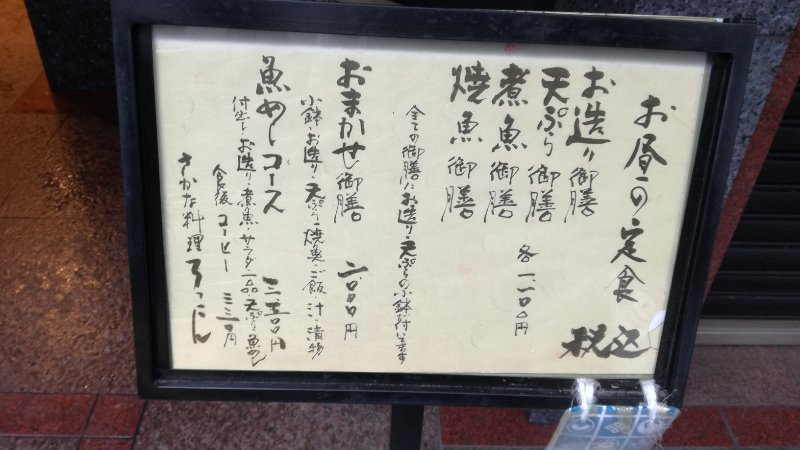 お昼の定食
税込
お造り御膳
天ぷら御膳
煮魚御膳
焼魚御膳
各一、一〇〇円
全ての御膳にお造り・天ぷらの小鉢付います
おまかせ御膳 二、〇〇〇円
小鉢・お造り・天ぷら・焼魚・ご飯・汁・漬物
魚めしコース 三、五〇〇円
付出し・お造り・煮魚・サラダ・一品・天ぷら・魚めし
食後 コーヒー 三三〇円
さかな料理